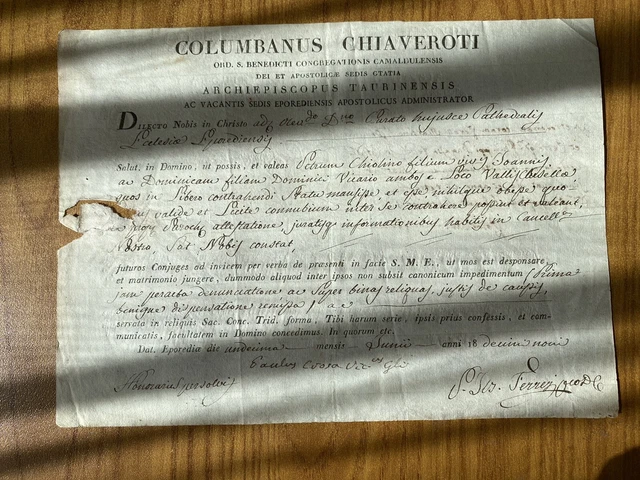 COLUMBANUS CHIAVEROTI
ORD. S. BENEDICTI CONGREGATIONIS CAMALDULENSIS
DEI ET APOSTOLICÆ SEDIS GTATIA
ARCHIEPISCOPUS TAURINENSIS
AC VACANTIS SEDIS EPOREDIENSIS APOSTOLICUS ADMINISTRATOR
DILECTO Nobis in Christo adm. Revdo Dno Curato hujusce Cathedralis
Ecclesiæ Eporediensis
Salut. in Domino, ut possis, et valeas Petrum Chiolino filium vivi Joannis
ac Dominicam filiam Dominici Vicario ambos e Loco Vallis
quos in Libero contrahendi Statu mansisse et esse nihilque obesse quo
valide et Licite connubium inter se contrahere possint et valeant,
attestatione, juratisque informationibus habitis in Cancell.
Nostra Sat Nobis constat
futuros Conjuges ad invicem per verba de præsenti in facie S. M. E., ut mos est desponsare
et matrimonio jungere, dummodo aliquod inter ipsos non subsit canonicum impedimentum (Prima
denunciatione ac Super binas reliquas, justis de causis,
benigne dispensatione remissa) ac
servata in reliquis Sac. Conc. Trid. forma, Tibi harum serie, ipsis prius confessis, et com-
municatis, facultatem in Domino concedimus. In quorum etc.
Dat. Eporediæ die undecima mensis Junii anni 18 decimi noni
Paulus